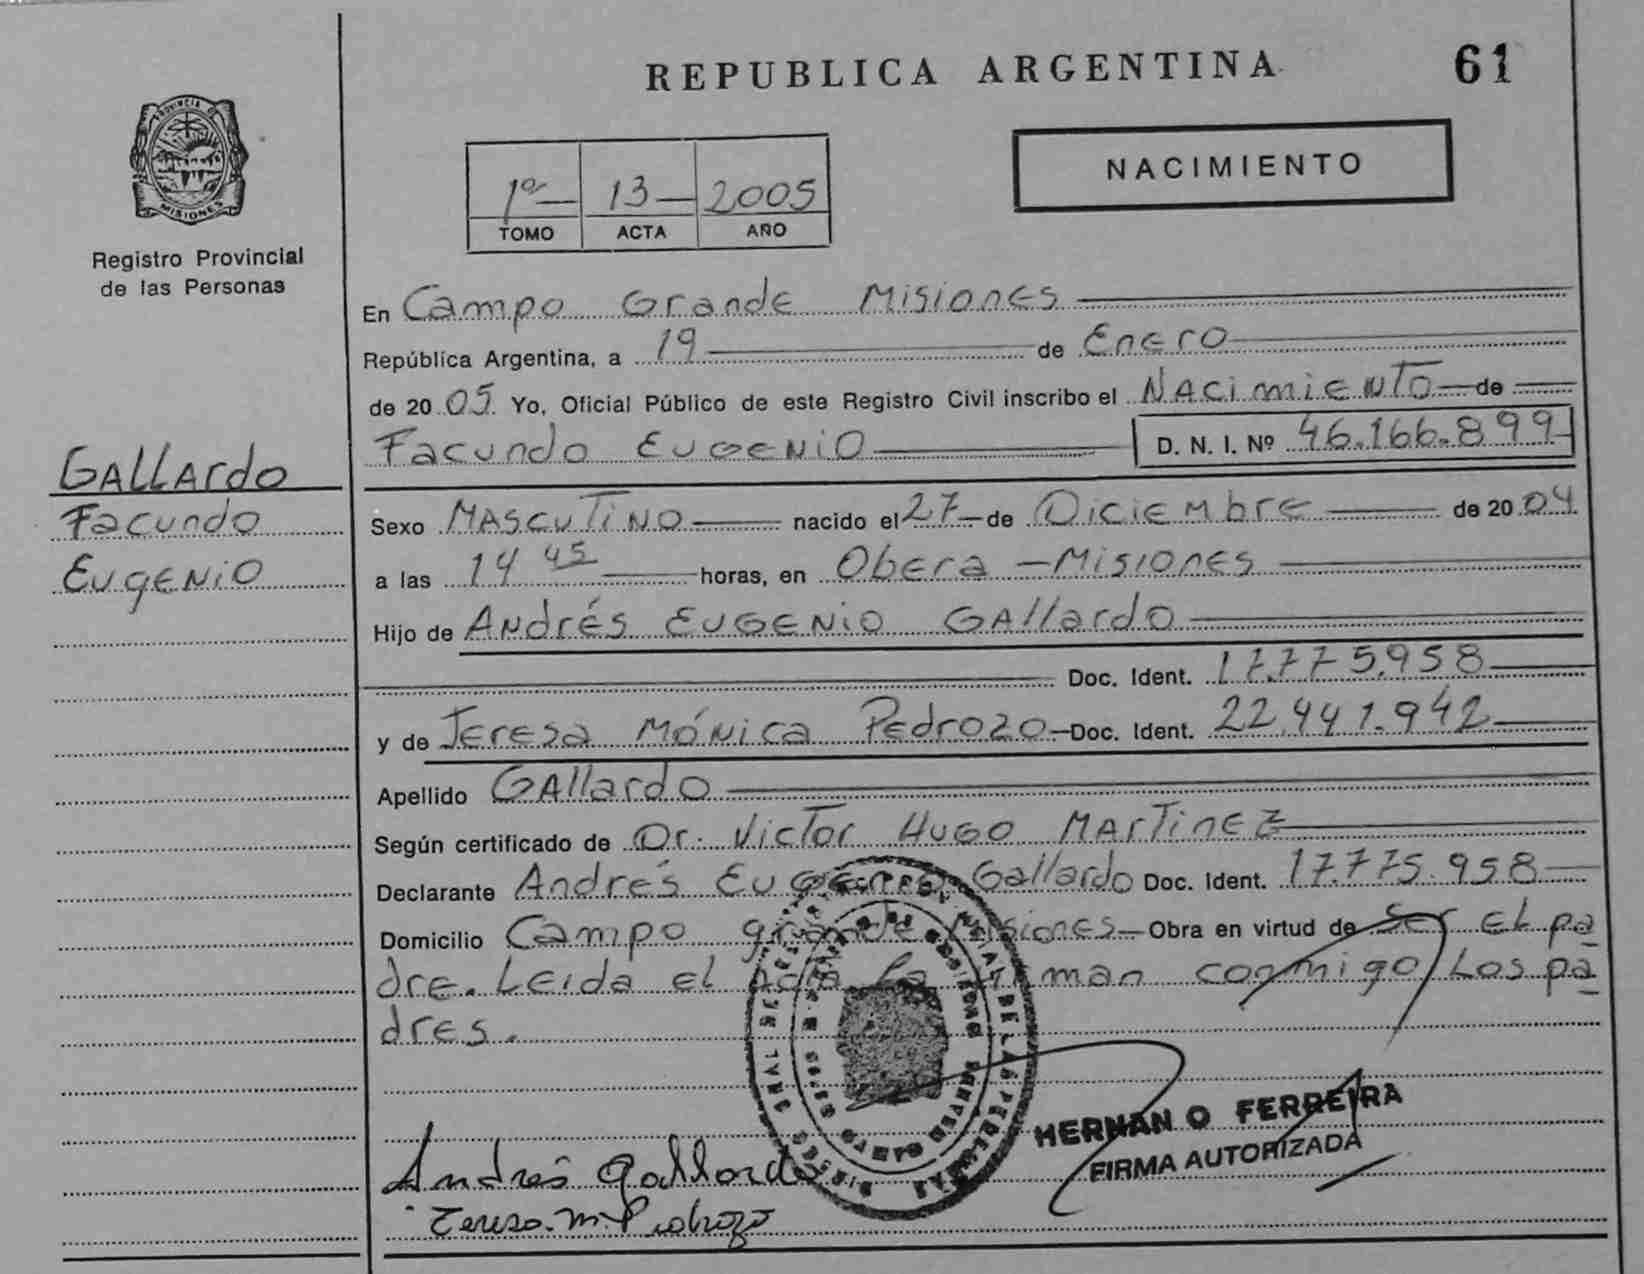 REPUBLICA ARGENTINA
61
PROVINCIA DE
MISIONES
Registro Provincial
de las Personas
1º 13 2005
TOMO ACTA AÑO
NACIMIENTO
En Campo Grande Misiones
República Argentina, a 19 de Enero
de 2005. Yo, Oficial Público de este Registro Civil inscribo el Nacimiento de
Facundo Eugenio D. N. I. Nº 46.166.899
GALLARdo
Facundo
Eugenio
Sexo Masculino nacido el 27 de Diciembre de 2004
a las 14 45 horas, en Obera - Misiones
Hijo de Andrés Eugenio Gallardo
Doc. Ident. 17.775.958
y de Teresa Mónica Pedrozo Doc. Ident. 22.441.942
Apellido Gallardo
Según certificado de Dr. Victor Hugo Martinez
Declarante Andrés Eugenio Gallardo Doc. Ident. 17.775.958
Domicilio Campo grande Misiones Obra en virtud de Ser el pa
dre. Leida el Acta la firman conmigo Los pa
dres.
HERNAN O FERREIRA
FIRMA AUTORIZADA
Andrés Gallardo
Teresa M. Pedrozo